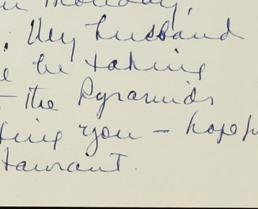 Monday,
. My husband
be taking
- the Pyramids
you - hope
taurant.